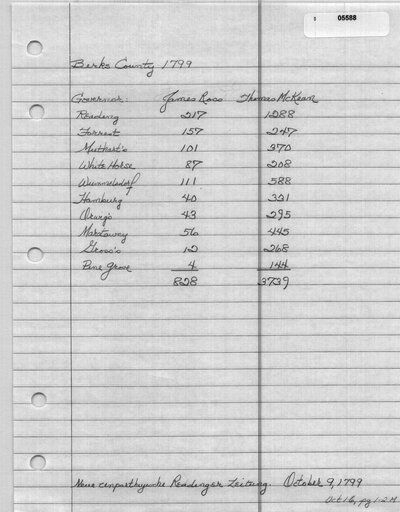 05588
Berks County 1799
Governor: James Ross Thomas McKean
Reading 217 1288
Forrest 157 247
Muthart's 101 370
White Horse 87 208
Wummelsdorf 111 588
Hamburg 40 321
Orwig's 43 295
Maxtawny 56 445
Gross's 12 268
Pine Grove 4 144
828 3739
Neue unpartheyische Readinger Zeitung. October 9, 1799
Oct 16, pg 1-2